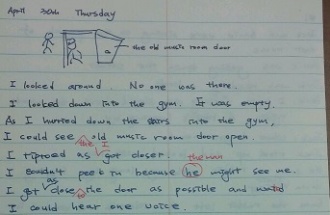 April 30th Thursday
the old music room door
I looked around. No one was there.
I looked down into the gym. It was empty.
As I hurried down the stairs into the gym,
I could see the old music room door open.
I tiptoed as I got closer. the man
I couldn't peek in because he might see me.
I got as close to the door as possible and
I could hear one voice.